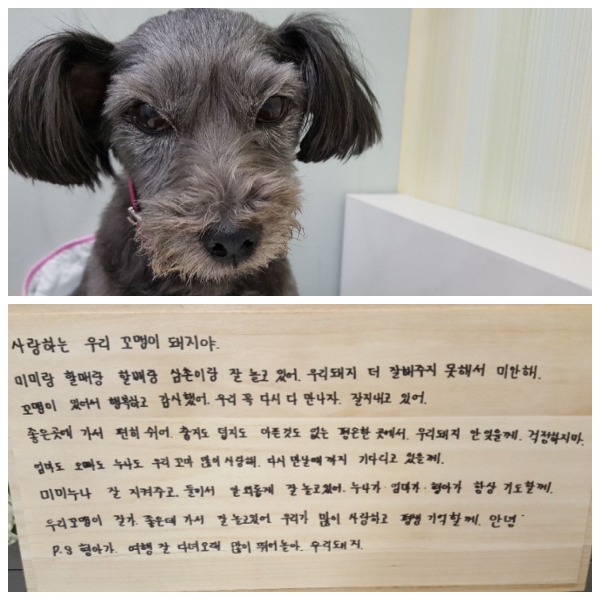 사랑하는 우리 꼬맹이 돼지야.
미미랑 할매랑 할배랑 삼촌이랑 잘 놀고 있어. 우리돼지 더 잘해주지 못해서 미안해.
꼬맹이 있어서 행복하고 감사했어. 우리 꼭 다시 다 만나자. 잘지내고 있어.
좋은곳에 가서 편히 쉬어. 춥지도 덥지도 아픈것도 없는 평온한 곳에서. 우리돼지 안잊을께. 걱정하지마.
엄마도 오빠도 누나도 우리 꼬마 많이 사랑해. 다시 만날때 까지 기다리고 있을께.
미미누나 잘 지켜주고. 둘이서 안 외롭게 잘 놀고있어. 누나가 엄마가 형아가 항상 기도할께.
우리꼬맹이 잘가. 좋은데 가서 잘 놀고있어 우리가 많이 사랑하고 평생 기억할께. 안녕~
P.S 형아가. 여행 잘 다녀오래 많이 뛰어놀아. 우리돼지.